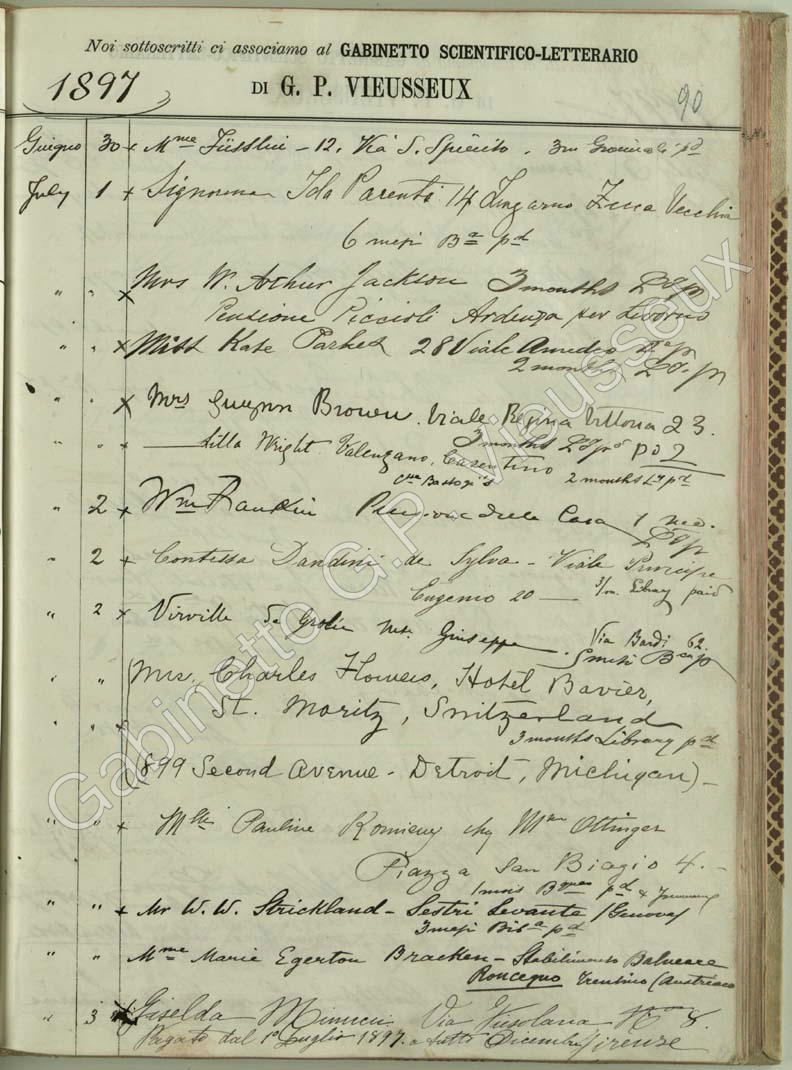 Noi sottoscritti ci associamo al GABINETTO SCIENTIFICO-LETTERARIO
1897 DI G. P. VIEUSSEUX 90
Giugno 30 x Mme Füsslin - 12. Via S. Spirito. 3m pd
July 1 x Signorina Ida Parenti 14 Lungarno Zecca Vecchia
6 mesi Ba pd
" " x Mrs W. Arthur Jackson 3 months
Pensione Piccioli Ardenza per Livorno
" " x Miss Kate Parker 28 Viale Amedeo
2 months
" " x Mrs Gwynn Brown. Viale Regina Vittoria 23.
3 months
" " x Lilla Wright. Valenzano, Casentino
2 months pd
" 2 x Wm Rankin Casa 1
" 2 x Contessa Dandini de Sylva - Viale Principe
Eugenio 20 — 3/m. Library paid
" 2 x Virville Giuseppe. Via Bardi 62.
mesi
" " Mrs. Charles Flowers, Hotel Bavier,
" " x St. Moritz, Switzerland
3 months Library pd
(899 Second Avenue - Detroit, Michigan) -
" " x Mlle Pauline Romieux Mme Ottinger
Piazza San Biagio 4. -
1 mois pd
" " x Mr W. W. Strickland - Sestri Levante (Genova)
3 mesi Bib a pd
" " Mme Marie Egerton Bracken - Stabilimento Balneare
Roncegno Trentino (Austriaco
" 3 x Giselda Minucci Via Fiesolana No 8.
Pagato dal 1o Luglio 1897. a tutto Dicembre Firenze
Gabinetto G.P. Vieusseux